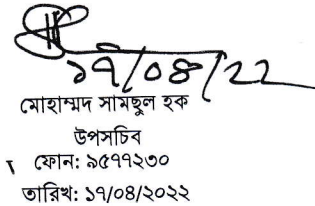 ১৭/০৪/২২
মোহাম্মদ সামছুল হক
উপসচিব
ফোন: ৯৫৭৭২৩০
তারিখ: ১৭/০৪/২০২২